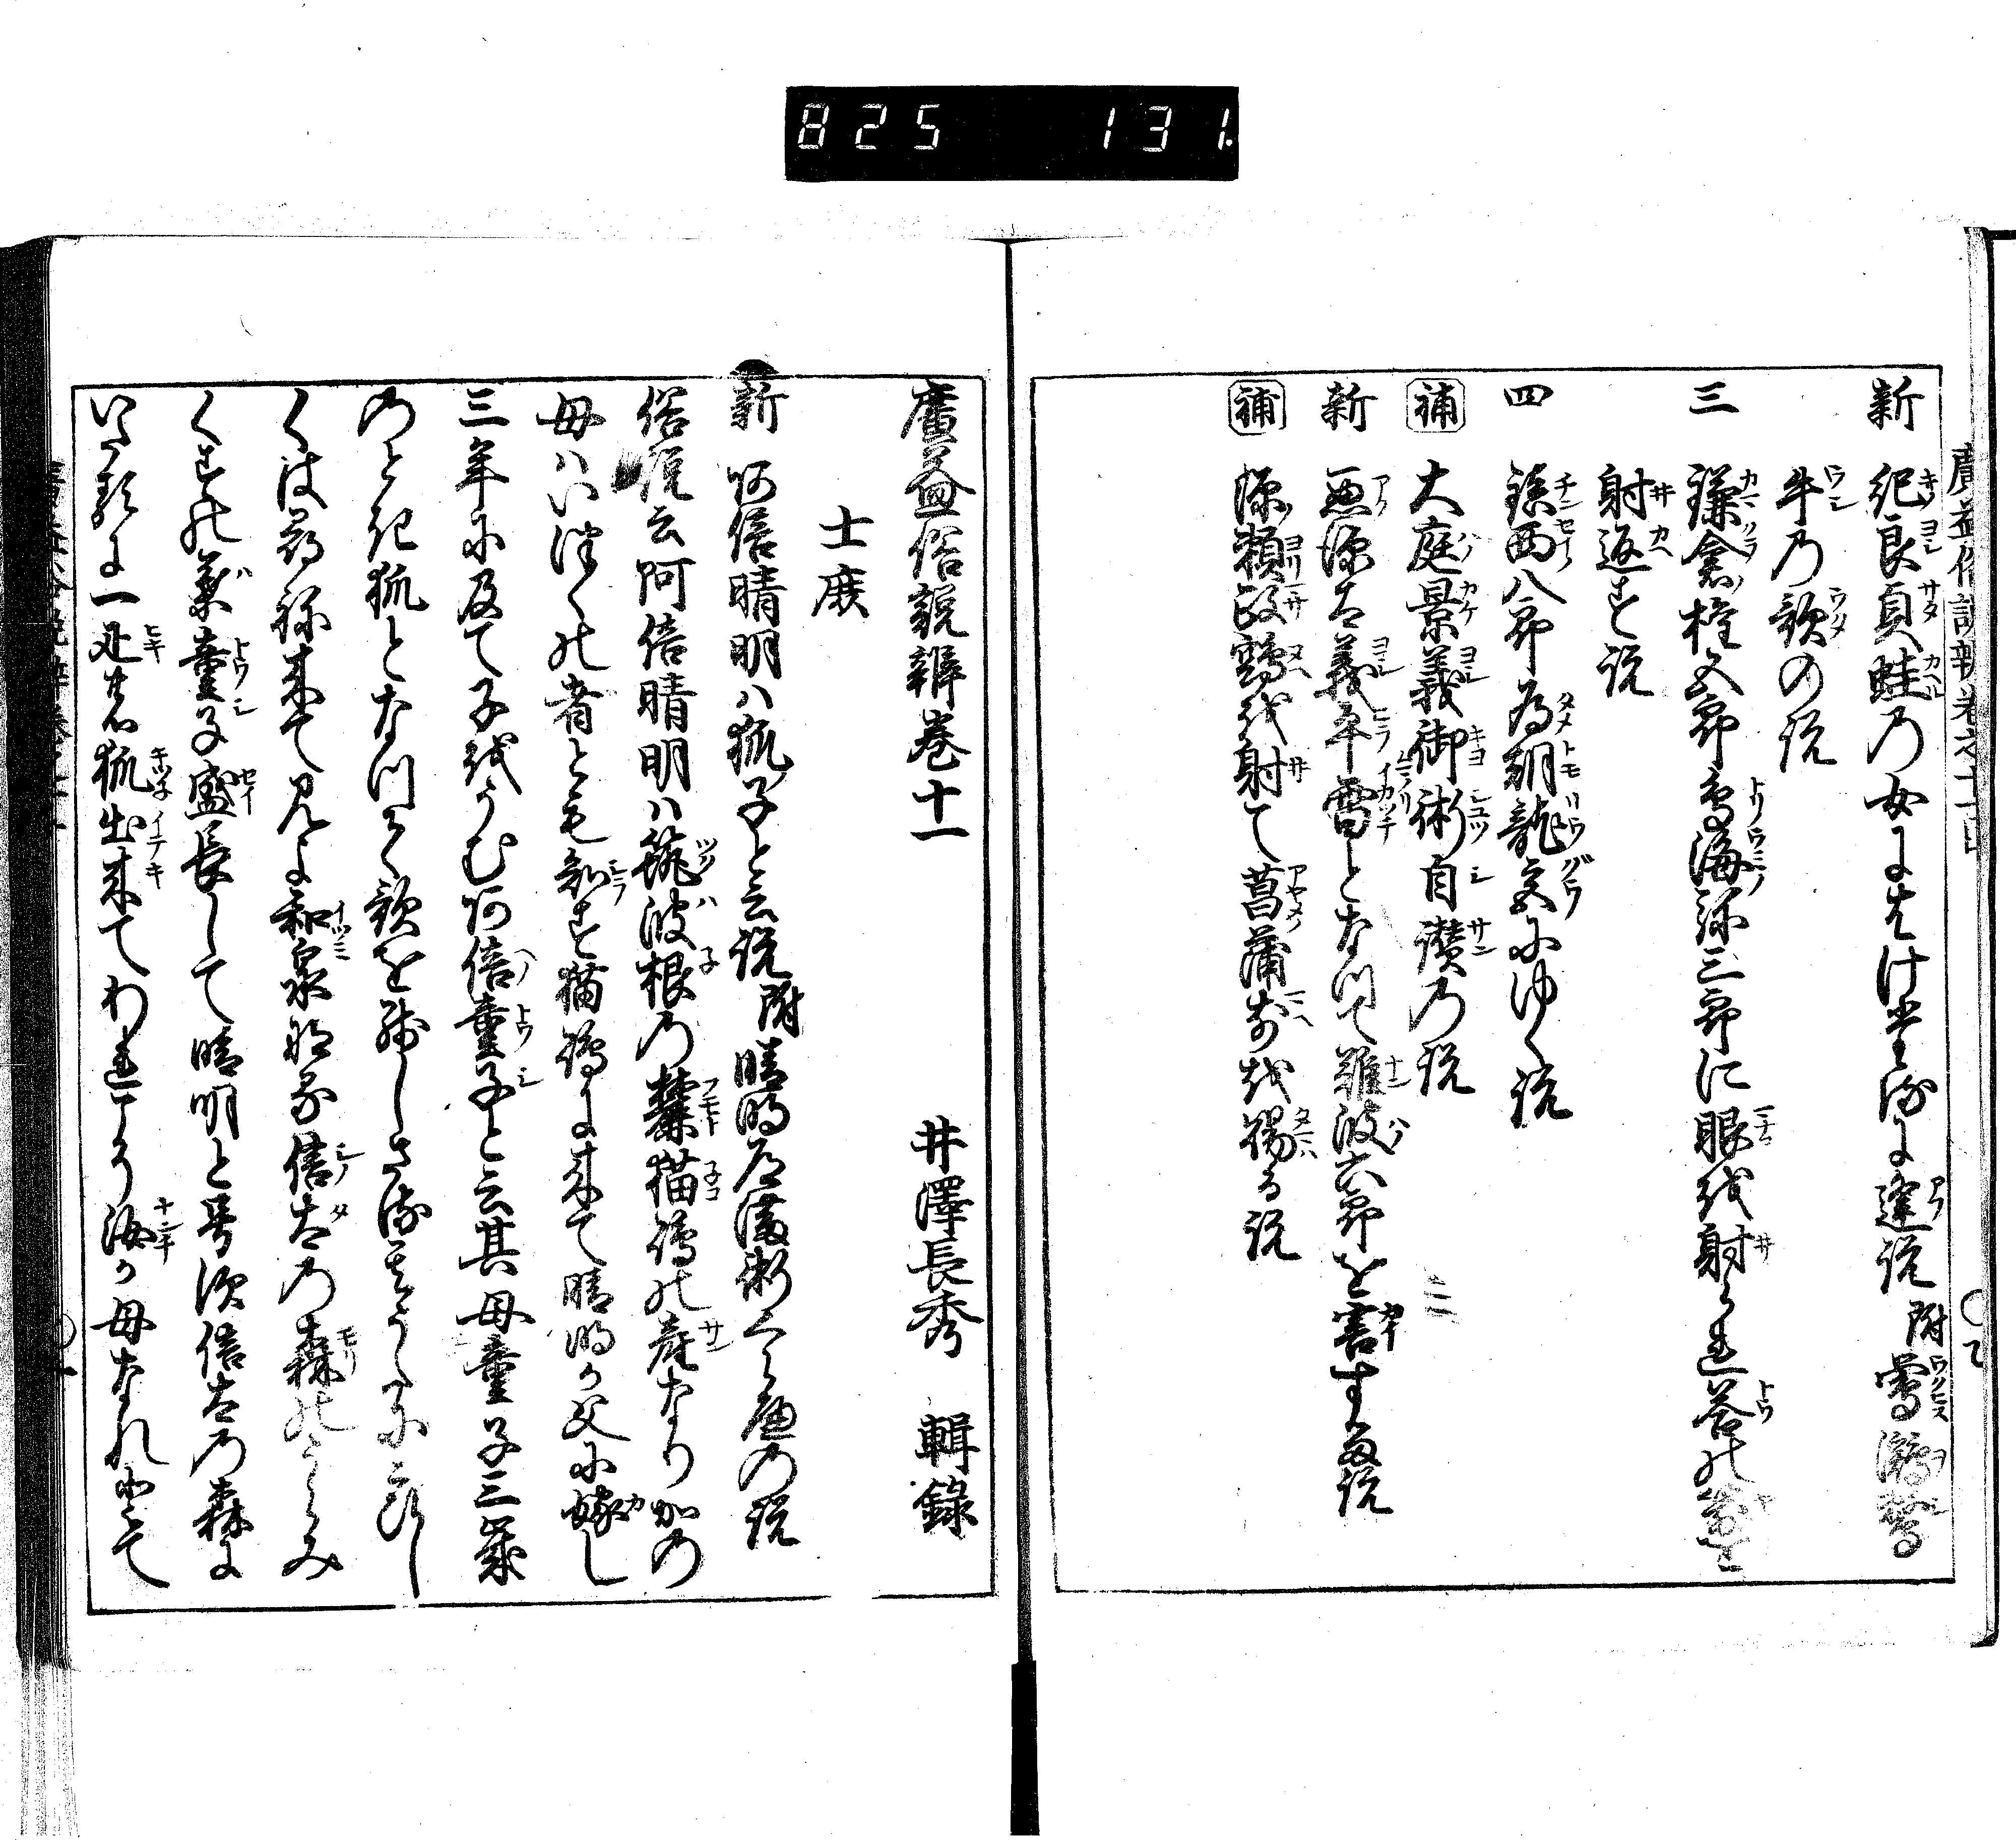 825 131.
新 紀良貞蛙乃女によける歌に逢説 附鶯
牛乃歌の説
三 鎌倉権五郎鳥海弥三郎に眼を射られ答の
射返す説
四 鎮西八郎為朝龍宮にゆく説
補 大庭景義御術自讃乃説
新 悪源太義平雷となつて難波六郎を害する説
補 源頼政鵺を射て菖蒲前を賜る説
廣益俗説辯巻十一
井澤長秀 輯録
士庶
新 阿倍晴明ハ狐子と云説 附晴明道満術くらへの説
俗説云阿倍晴明ハ筑波根の麓猫嶋の産なりかの
母ハいつくの者とも知す猫嶋に来て晴明か父に嫁し
三年に及て子をうむ阿倍童子と云其母童子三歳
のとき狐となつて歌を残しさる其うたに恋し
くは尋ね来て見よ和泉なる信太の森のうらみ
くすの葉童子盛長して晴明と号す信太の森に
いたるに一疋の狐出来てわれこそ汝か母なれとて